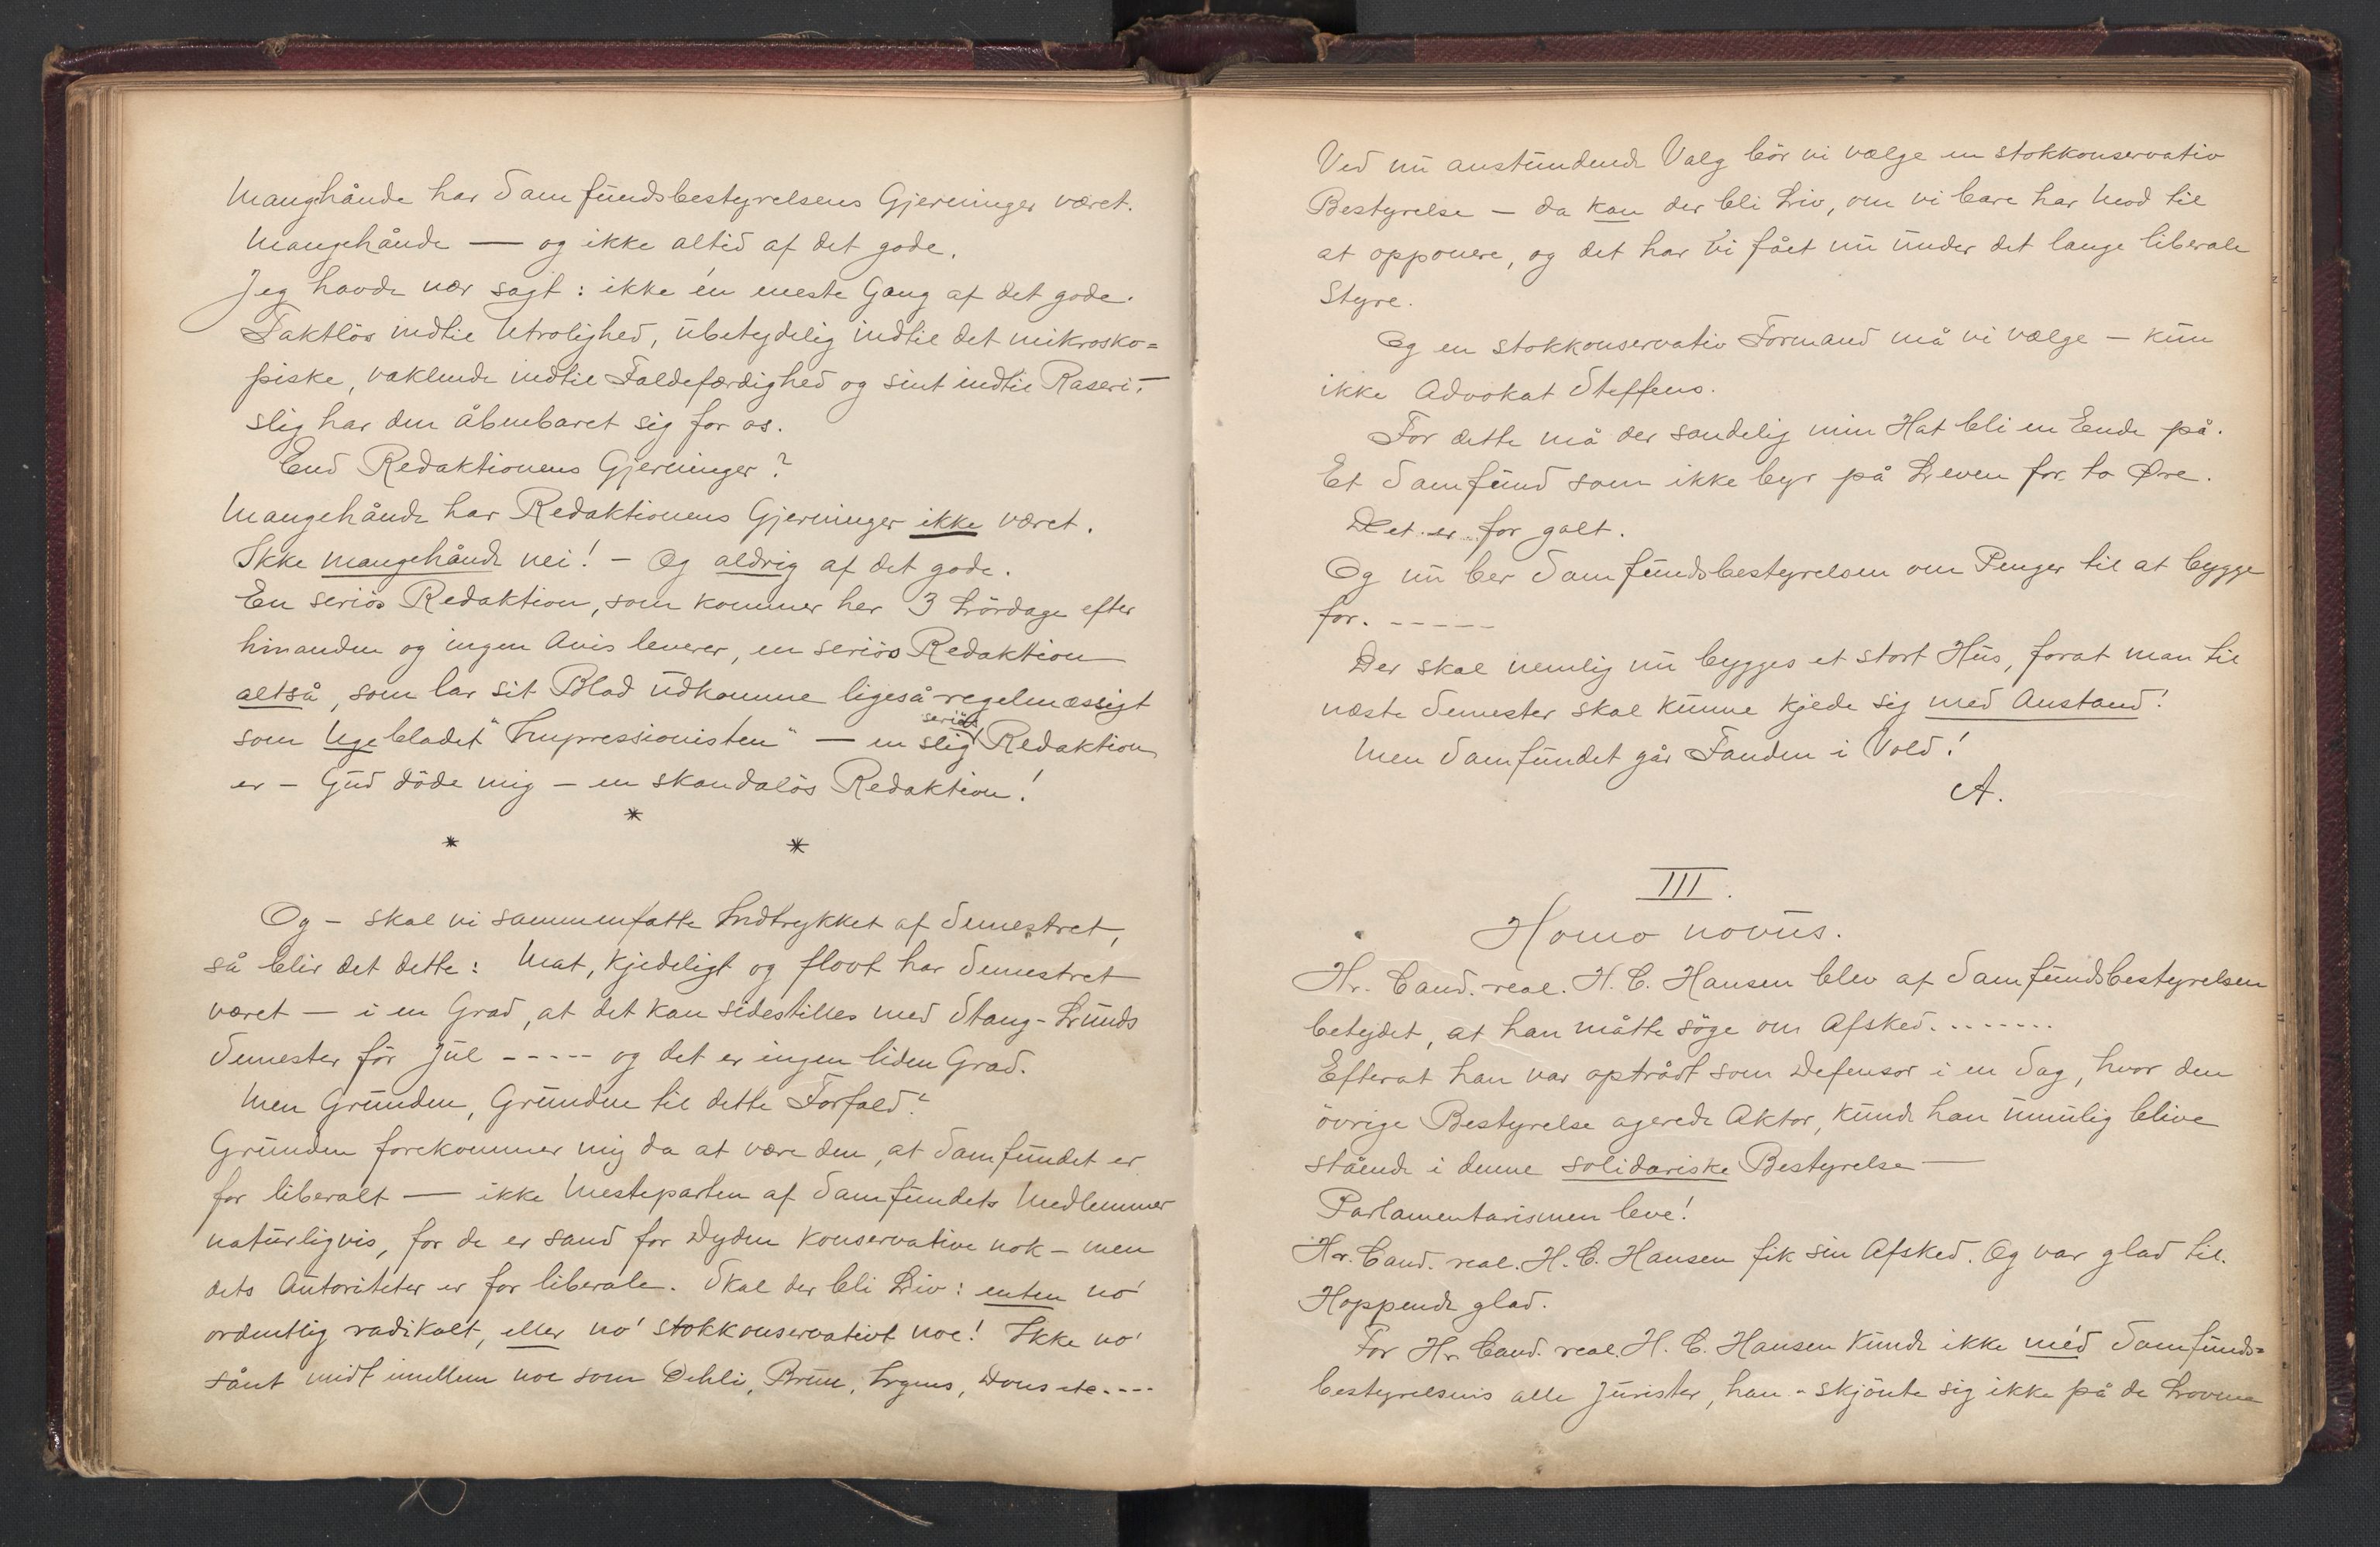 Mangehånde har Samfundsbestyrelsens Gjerninger været.
Mangehånde — og ikke altid af det gode.
Jeg havde nær sagt: ikke én eneste Gang af det gode.
Taktlös indtil Utrolighed, ubetydelig indtil det mikrosko=
piske, vaklende indtil Faldefærdighed og sint indtil Raseri, —
slig har den åbenbaret sig for os.
End Redaktionens Gjerninger?
Mangehånde har Redaktionens Gjerninger ikke været.
Ikke mangehånde nei! — Og aldrig af det gode.
En seriös Redaktion, som kommer her 3 Lördage efter
hinanden og ingen Avis leverer, en seriös Redaktion
altså, som lar sit Blad udkomme ligeså regelmæssigt
som Ugebladet "Impressionisten" — en slig seriös Redaktion
er — Gud döde mig — en skandalös Redaktion!
* * *
Og — skal vi sammenfatte Indtrykket af Semestret,
så blir det dette: Mat, kjedeligt og flovt har Semestret
været — i en Grad, at det kan sidestilles med Stang-Lunds
Semester för Jul ----- og det er ingen liden Grad.
Men Grunden, Grunden til dette Forfald?
Grunden forekommer mig da at være den, at Samfundet er
for liberalt — ikke Mesteparten af Samfundets Medlemmer
naturligvis, for de er sand for Dyden konservative nok — men
dets Autoriteter er for liberale. Skal der bli Liv: enten no'
ordentlig radikalt, eller no' stokkonservativt noe! Ikke no'
sånt midt imellem noe som Dehli, Brun, Irgens, Dons etc. ----
Ved nu anstundende Valg bör vi vælge en stokkonservativ
Bestyrelse — da kan der bli Liv, om vi bare har Mod til
at opponere, og det har vi fået nu under det lange liberale
Styre.
Og en stokkonservativ Formand må vi vælge — kun
ikke Advokat Steffens.
For dette må der sandelig min Hat bli en Ende på.
Et Samfund som ikke byr på Leven for to Øre.
Det er for galt.
Og nu ber Samfundsbestyrelsen om Penger til at bygge
for. -----
Der skal nemlig nu bygges et stort Hus, forat man til
næste Semester skal kunne kjede sig med Anstand!
Men Samfundet går Fanden i Vold!
A.
III.
Homo novus.
Hr. Cand. real. H. C. Hansen blev af Samfundsbestyrelsen
betydet, at han måtte söge om Afsked. .......
Efterat han var optrådt som Defensor i en Sag, hvor den
övrige Bestyrelse agerede Aktor, kunde han umulig blive
stående i denne solidariske Bestyrelse —
Parlamentarismen leve!
Hr. Cand. real. H. C. Hansen fik sin Afsked. Og var glad til.
Hoppende glad.
For Hr. Cand. real. H. C. Hansen kunde ikke méd Samfunds=
bestyrelsens alle Jurister, han - skjönte sig ikke på de Lovene